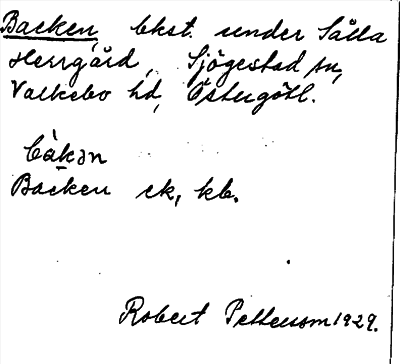 Backen, bkst. under Sålla
Herrgård, Sjögestad sn,
Valkebo hd, Östergötl.
bàkən
Backen ek, kb.
Robert Pettersson 1929.